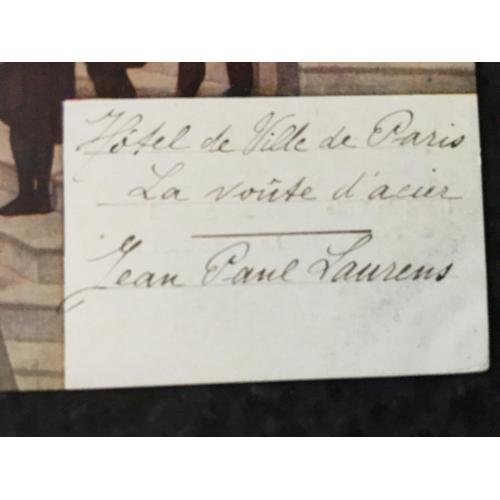 Hôtel de Ville de Paris
La voûte d'acier
Jean Paul Laurens